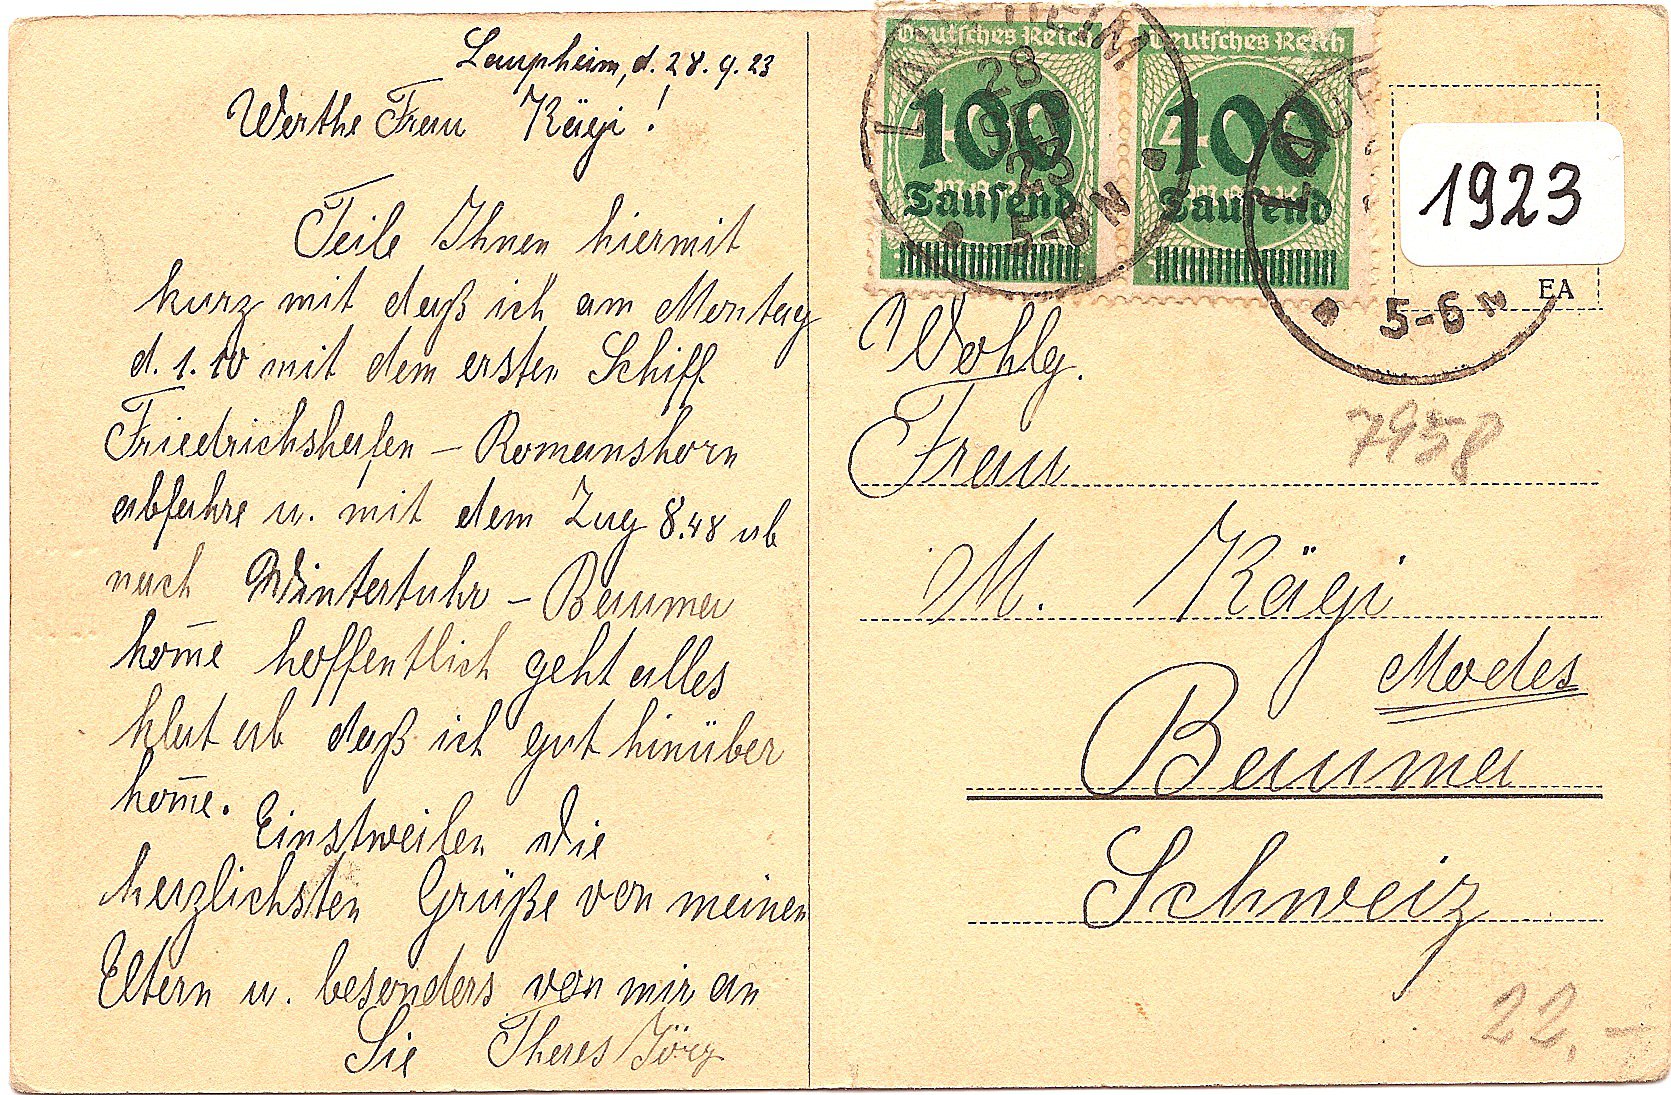 Laupheim, d. 28.9.23
Werthe Frau Kägi!
Teile Ihnen hiermit
kurz mit daß ich am Montag
d. 1.10 mit dem ersten Schiff
Friedrichshafen – Romanshorn
abfahre u. mit dem Zug 8.48 ab
nach Wintertuhr – Bauma
kom̅e hoffentlich geht alles
klat ab daß ich gut hinüber
kom̅e. Einstweilen die
herzlichsten Grüße von meinen
Eltern u. besonders von mir an
Sie Theres Jörg
Deutsches Reich
100
Tausend
Deutsches Reich
100
Tausend
LAUPHEIM
28 SEP 23
5-6N
LAUPHEIM
5-6N
1923
EA
Wohlg.
Frau
7958
M. Kägi
Modes
Bauma
Schweiz
22,–